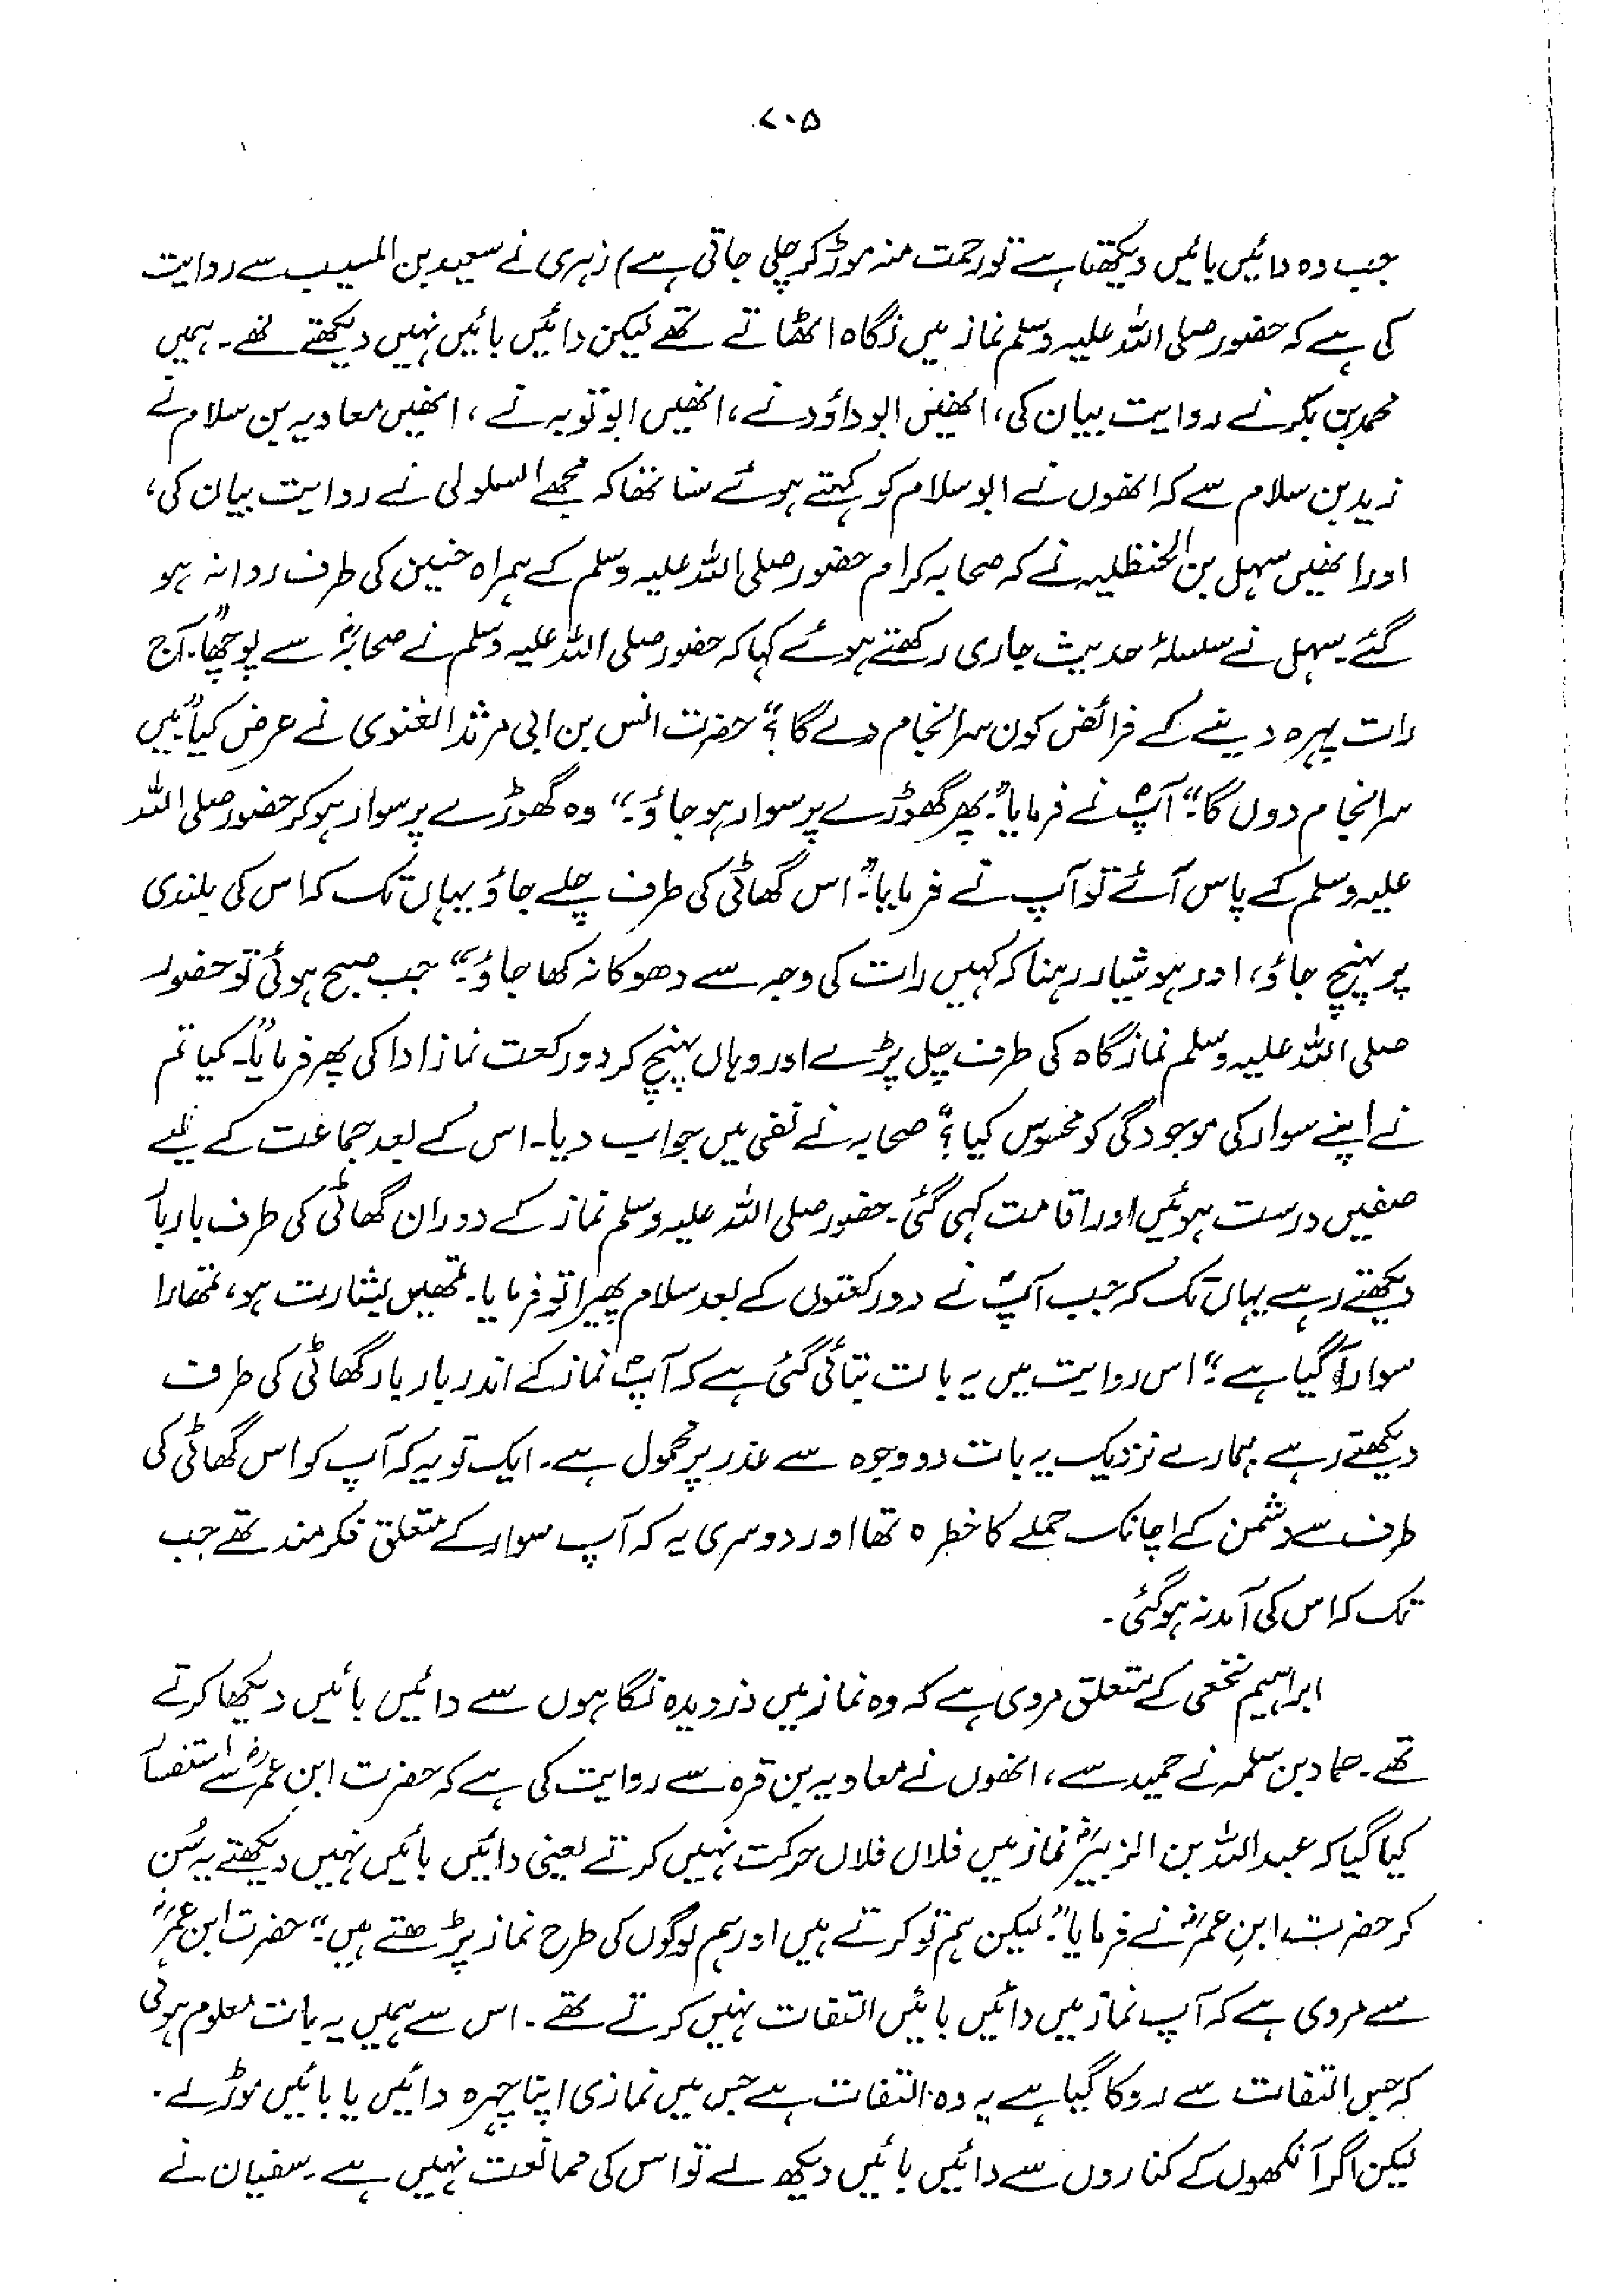 ۷۰۵
جب وہ دائیں بائیں دیکھتا ہے تو رحمت منہ موڑ کر چلی جاتی ہے) زہری نے سعید بن المسیب سے روایت
کی ہے کہ حضور صلی اللہ علیہ وسلم نماز میں نگاہ اٹھاتے تھے لیکن دائیں بائیں نہیں دیکھتے تھے۔ ہمیں
محمد بن بکر نے روایت بیان کی، انھیں ابو داؤد نے، انھیں ابو توبہ نے، انھیں معاویہ بن سلام نے
زید بن سلام سے کہ انھوں نے ابو سلام کو کہتے ہوئے سنا تھا کہ مجھے السلولی نے روایت بیان کی،
اور انھیں سہل بن الحنظلیہ نے کہ صحابہ کرام حضور صلی اللہ علیہ وسلم کے ہمراہ حنین کی طرف روانہ ہو
گئے۔ سہل نے سلسلۂ حدیث جاری رکھتے ہوئے کہا کہ حضور صلی اللہ علیہ وسلم نے صحابہؓ سے پوچھا۔ "آج
رات پہرہ دینے کے فرائض کون سرانجام دے گا؟" حضرت انس بن ابی مرثد الغنوی نے عرض کیا "میں
سرانجام دوں گا۔" آپؐ نے فرمایا۔ "پھر گھوڑے پر سوار ہو جاؤ۔" وہ گھوڑے پر سوار ہو کر حضور صلی اللہ
علیہ وسلم کے پاس آئے تو آپ نے فرمایا۔ "اس گھاٹی کی طرف چلے جاؤ یہاں تک کہ اس کی بلندی
پر پہنچ جاؤ، اور ہوشیار رہنا کہ کہیں رات کی وجہ سے دھوکا نہ کھا جاؤ۔" جب صبح ہوئی تو حضور
صلی اللہ علیہ وسلم نماز گاہ کی طرف چل پڑے اور وہاں پہنچ کر دو رکعت نماز ادا کی پھر فرمایا۔ "کیا تم
نے اپنے سوار کی موجودگی کو محسوس کیا؟" صحابہ نے نفی میں جواب دیا۔ اس کے بعد جماعت کے لیے
صفیں درست ہوئیں اور اقامت کہی گئی۔ حضور صلی اللہ علیہ وسلم نماز کے دوران گھاٹی کی طرف بار بار
دیکھتے رہے یہاں تک کہ جب آپؐ نے دو رکعتوں کے بعد سلام پھیرا تو فرمایا۔ تمھیں بشارت ہو، تمھارا
سوار آ گیا ہے۔" اس روایت میں یہ بات بتائی گئی ہے کہ آپؐ نماز کے اندر بار بار گھاٹی کی طرف
دیکھتے رہے ہمارے نزدیک یہ بات دو وجوہ سے عذر پر محمول ہے۔ ایک تو یہ کہ آپ کو اس گھاٹی کی
طرف سے دشمن کے اچانک حملے کا خطرہ تھا اور دوسری یہ کہ آپ سوار کے متعلق فکر مند تھے جب
تک کہ اس کی آمد نہ ہو گئی۔
ابراہیم نخعی کے متعلق مروی ہے کہ وہ نماز میں دزدیدہ نگاہوں سے دائیں بائیں دیکھا کرتے
تھے۔ حماد بن سلمہ نے حمید سے، انھوں نے معاویہ بن قرہ سے روایت کی ہے کہ حضرت ابن عمرؓ سے استفسار
کیا گیا کہ عبد اللہ بن الزبیرؓ نماز میں فلاں فلاں حرکت نہیں کرتے یعنی دائیں بائیں نہیں دیکھتے یہ سُن
کر حضرت ابنِ عمرؓ نے فرمایا۔ "لیکن ہم تو کرتے ہیں اور ہم لوگوں کی طرح نماز پڑھتے ہیں۔" حضرت ابن عمرؓ
سے مروی ہے کہ آپ نماز میں دائیں بائیں التفات نہیں کرتے تھے۔ اس سے ہمیں یہ بات معلوم ہوئی
کہ جس التفات سے روکا گیا ہے یہ وہ التفات ہے جس میں نمازی اپنا چہرہ دائیں یا بائیں موڑ لے۔
لیکن اگر آنکھوں کے کناروں سے دائیں بائیں دیکھ لے تو اس کی ممانعت نہیں ہے۔ سفیان نے